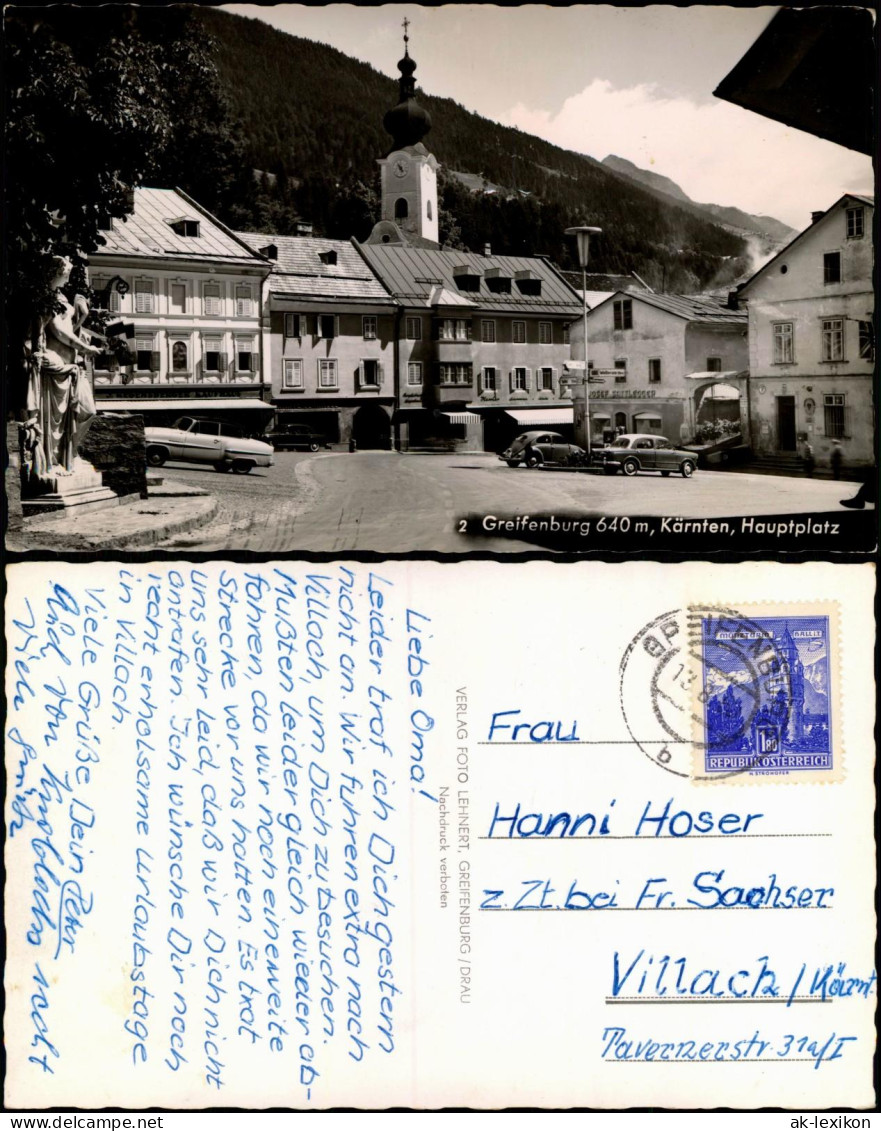 JOSEF SATTLEGGER
2 Greifenburg 640 m, Kärnten, Hauptplatz
Liebe Oma!
Leider traf ich Dich gestern
nicht an. Wir fuhren extra nach
Villach, um Dich zu besuchen.
Mußten leider gleich wieder ab-
fahren, da wir noch eine weite
Strecke vor uns hatten. Es trat
uns sehr leid, daß wir Dich nicht
antrafen. Ich wünsche Dir noch
recht erholsame Urlaubstage
in Villach.
Viele Grüße Dein Peter
Und von Knoblochs recht
VERLAG FOTO LEHNERT, GREIFENBURG / DRAU
Nachdruck verboten
GREIFENBURG
b
1.80
REPUBLIK ÖSTERREICH
Frau
Hanni Hoser
z. Zt. bei Fr. Sachser
Villach / Kärnt.
Tavernerstr. 31a/I
ak-lexikon